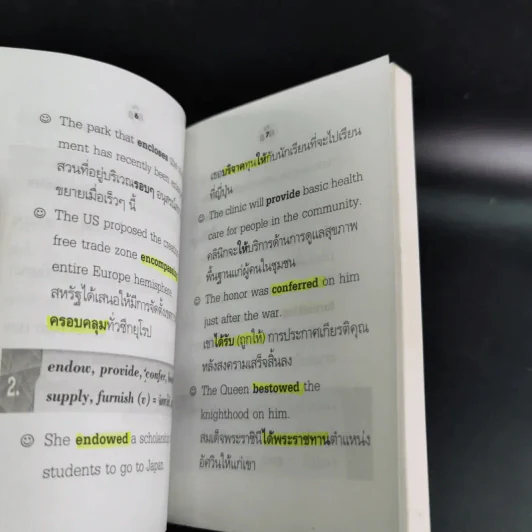 6
The park that encloses
ment has recently been
สวนที่อยู่บริเวณรอบๆ
ขยายเมื่อเร็วๆ นี้
The US proposed the
free trade zone
entire Europe hemisphere.
สหรัฐได้เสนอให้มีการจัดตั้ง
ครอบคลุมทั่วซีกยุโรป
2.
endow, provide, confer,
supply, furnish (v) =
She endowed a
students to go to Japan.
7
เธอบริจาคทุนให้กับนักเรียนที่จะไปเรียน
ที่ญี่ปุ่น
The clinic will provide basic health
care for people in the community.
คลินิกจะให้บริการด้านการดูแลสุขภาพ
พื้นฐานแก่ผู้คนในชุมชน
The honor was conferred on him
just after the war.
เขาได้รับ (ถูกให้) การประกาศเกียรติคุณ
หลังสงครามเสร็จสิ้นลง
The Queen bestowed the
knighthood on him.
สมเด็จพระราชินีได้พระราชทานตำแหน่ง
อัศวินให้แก่เขา